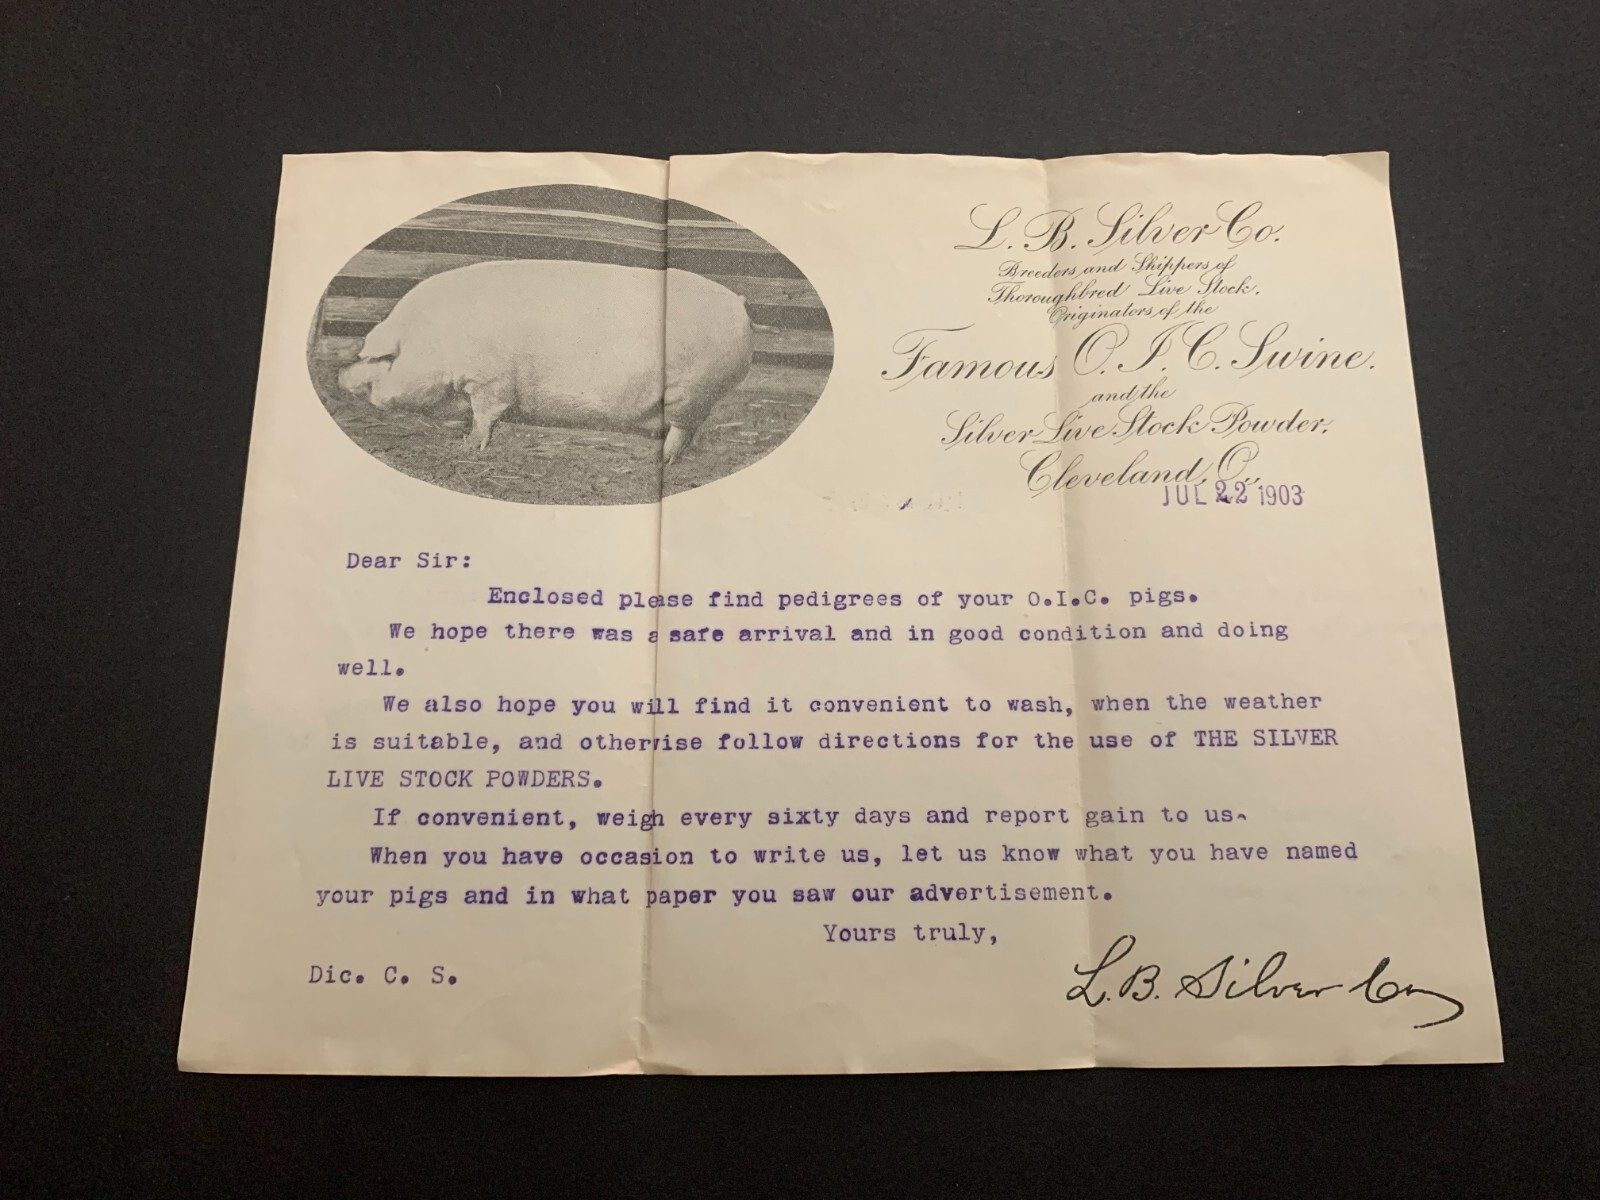 L. B. Silver Co.
Breeders and Shippers of
Thoroughbred Live Stock.
Originators of the
Famous O. I. C. Swine.
and the
Silver Live Stock Powder,
Cleveland, O.,
JUL 22 1903
Dear Sir:
Enclosed please find pedigrees of your O.I.C. pigs.
We hope there was a safe arrival and in good condition and doing
well.
We also hope you will find it convenient to wash, when the weather
is suitable, and otherwise follow directions for the use of THE SILVER
LIVE STOCK POWDERS.
If convenient, weigh every sixty days and report gain to us.
When you have occasion to write us, let us know what you have named
your pigs and in what paper you saw our advertisement.
Yours truly,
Dic. C. S.
L.B. Silver Co